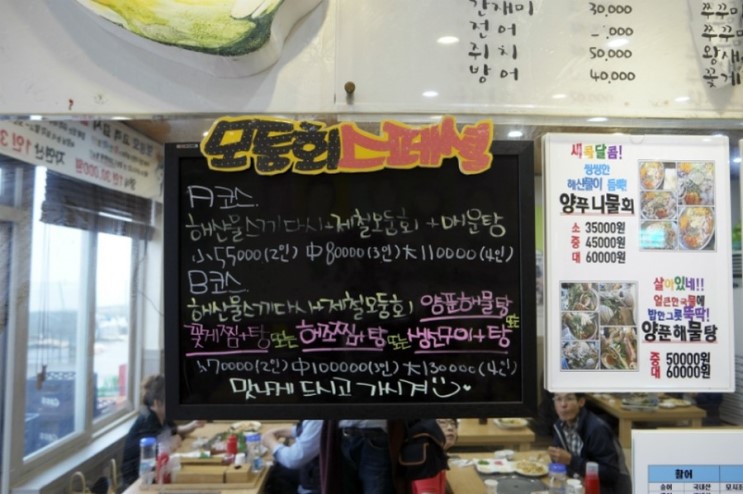 간재미 30,000
전어 -,000
쥐치 50,000
방어 40,000
쭈꾸미
왕새
꽃게
자연산 1인 3
모듬회스페셜
A코스.
해산물스끼다시+제철모둠회+매운탕
小55000(2인) 中80000(3인) 大110000(4인)
B코스
해산물스끼다시+제철모둠회 양푼해물탕
또는
꽃게찜+탕 또는 허조찜+탕 또는 생선구이+탕
小70000(2인) 中100000(3인) 大130000(4인)
맛나게 드시고 가시겨
새콤달콤!
씽씽한
해산물이 듬뿍!
양푸니물회
소 35000원
중 45000원
대 60000원
살아있네!!
얼큰한국물에
밥한그릇뚝딱!
양푼해물탕
중 50000원
대 60000원
활어
숭어 국내산